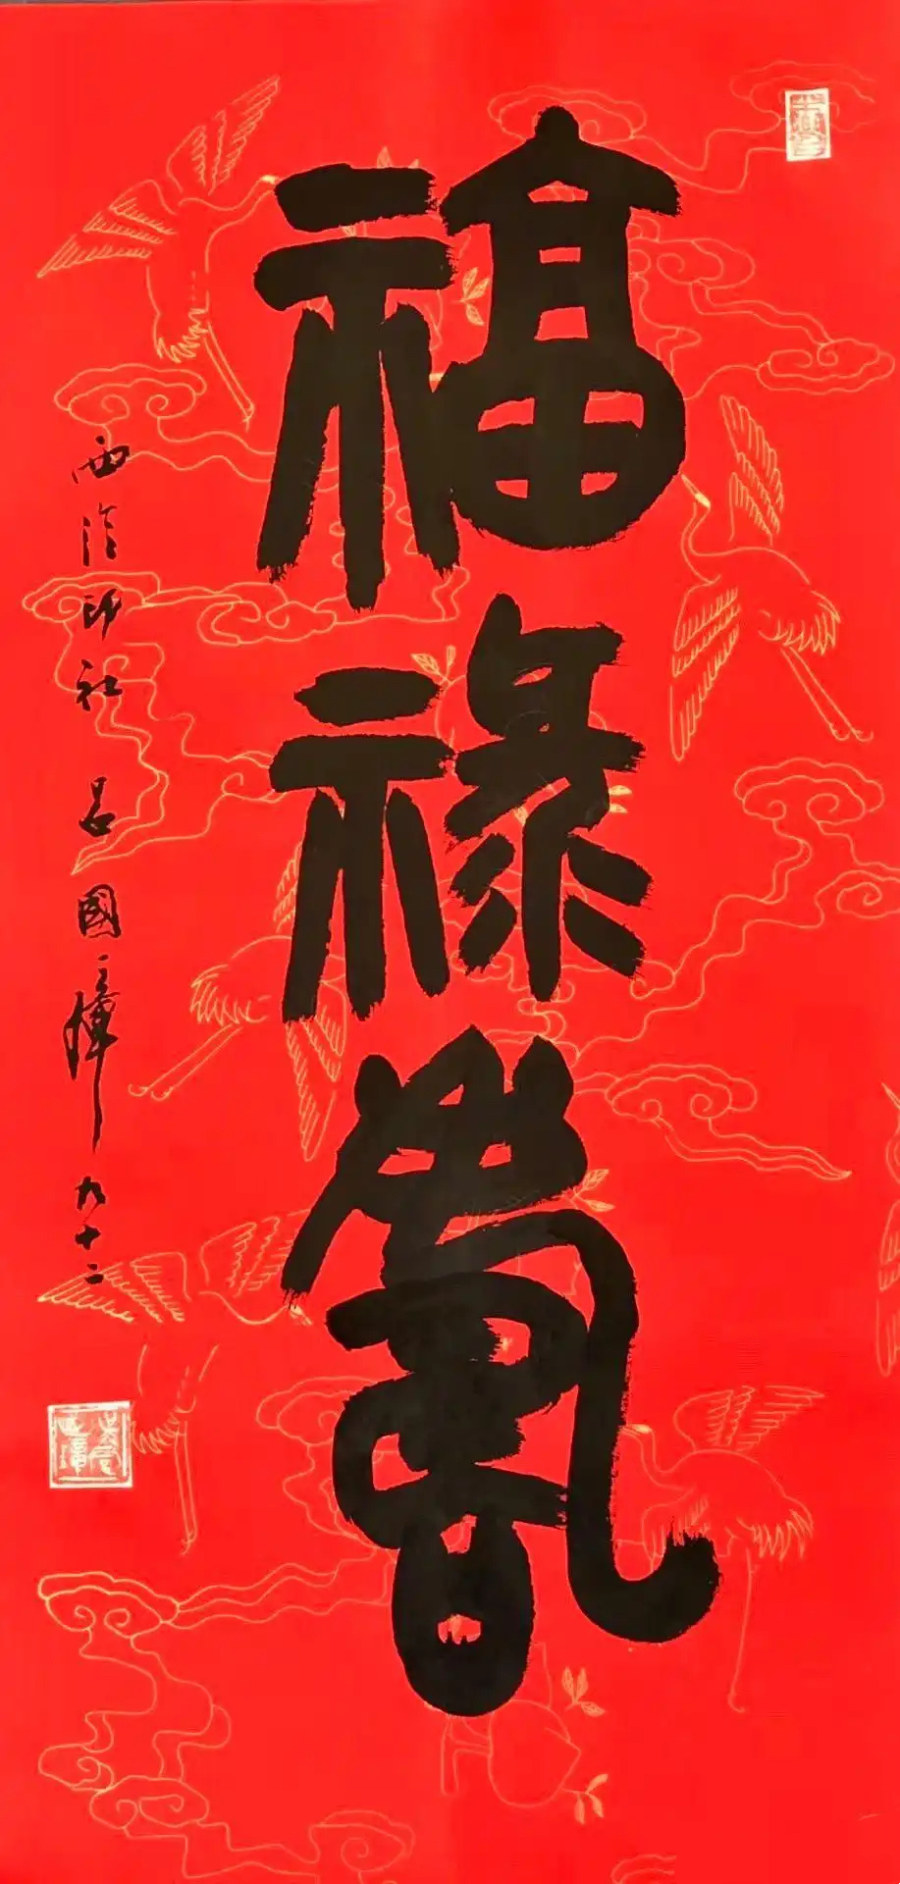 福祿壽
西泠印社 呂國璋 九十二